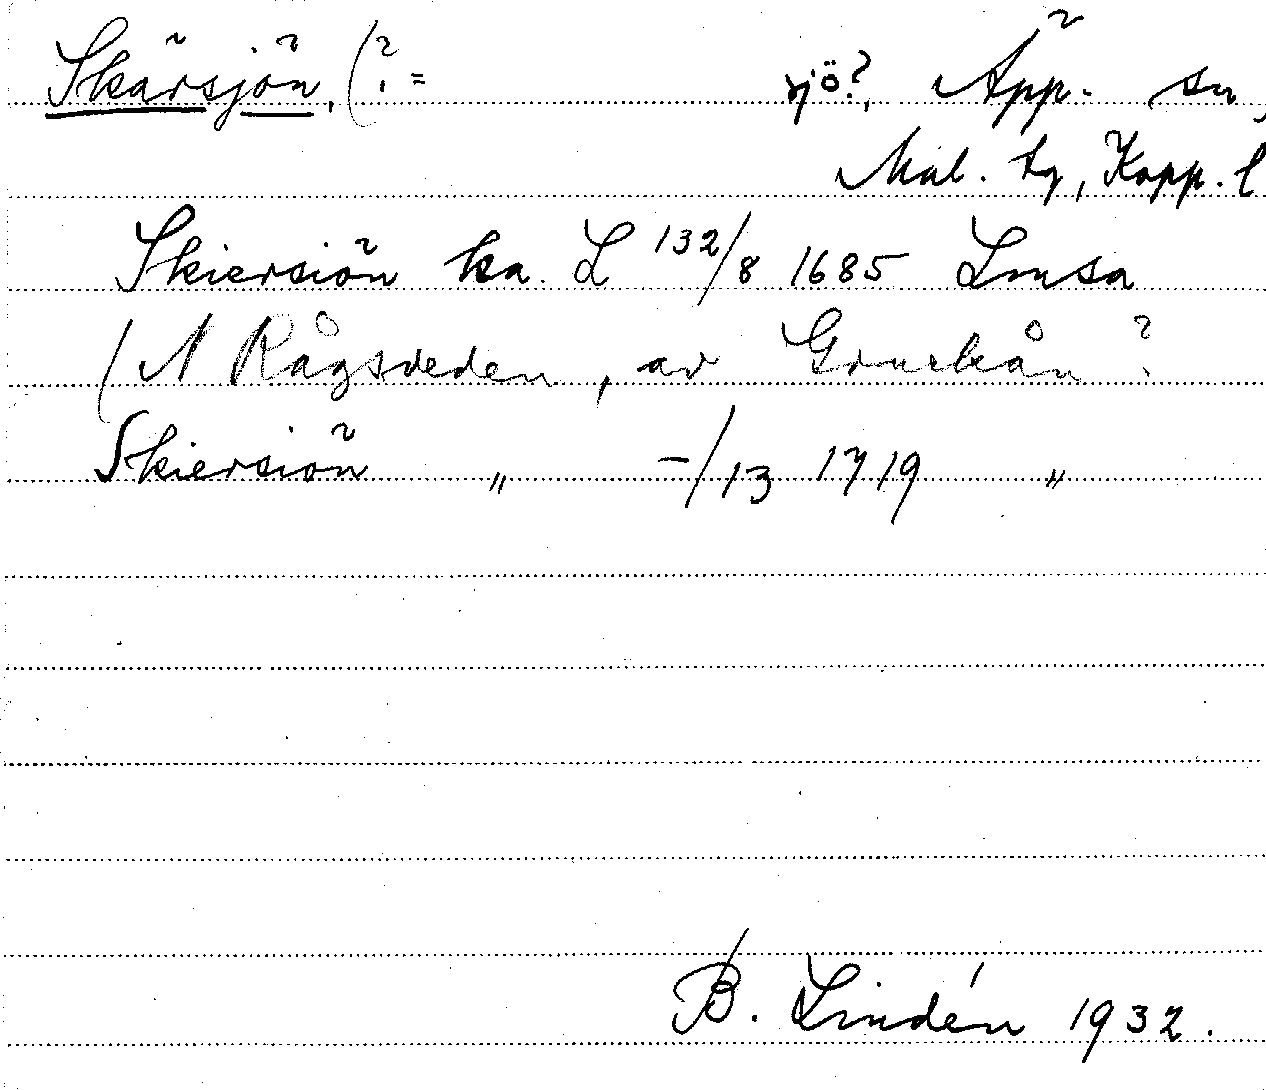 Skärsjön, (? = sjö?, Äpp. sn,
Mal. tg, Kopp. l
Skiersiön ka. L 132/8 1685 Lmsa
(N Rågsveden, av
Skiersiön „ –/13 1719 „
B. Lindén 1932.